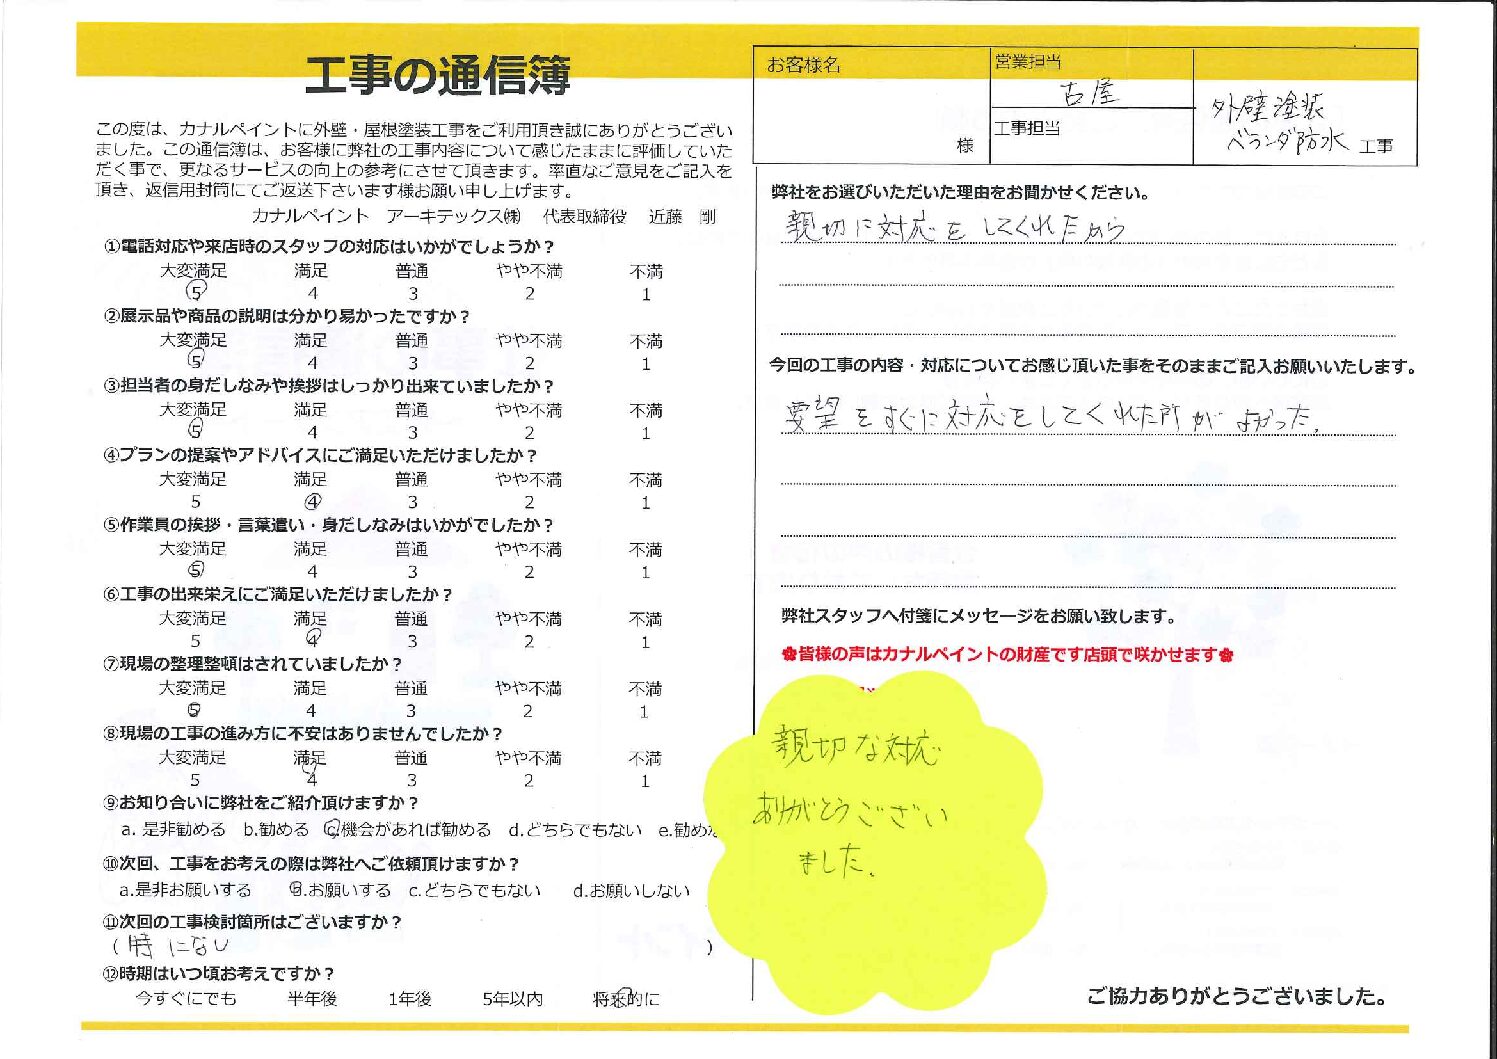 工事の通信簿
この度は、カナルペイントに外壁・屋根塗装工事をご利用頂き誠にありがとうござい
ました。この通信簿は、お客様に弊社の工事内容について感じたままに評価していた
だく事で、更なるサービスの向上の参考にさせて頂きます。率直なご意見をご記入を
頂き、返信用封筒にてご返送下さいます様お願い申し上げます。
カナルペイント アーキテックス㈱ 代表取締役 近藤 剛
①電話対応や来店時のスタッフの対応はいかがでしょうか？
大変満足 満足 普通 やや不満 不満
5 4 3 2 1
②展示品や商品の説明は分かり易かったですか？
大変満足 満足 普通 やや不満 不満
5 4 3 2 1
③担当者の身だしなみや挨拶はしっかり出来ていましたか？
大変満足 満足 普通 やや不満 不満
5 4 3 2 1
④プランの提案やアドバイスにご満足いただけましたか？
大変満足 満足 普通 やや不満 不満
5 4 3 2 1
⑤作業員の挨拶・言葉遣い・身だしなみはいかがでしたか？
大変満足 満足 普通 やや不満 不満
5 4 3 2 1
⑥工事の出来栄えにご満足いただけましたか？
大変満足 満足 普通 やや不満 不満
5 4 3 2 1
⑦現場の整理整頓はされていましたか？
大変満足 満足 普通 やや不満 不満
5 4 3 2 1
⑧現場の工事の進み方に不安はありませんでしたか？
大変満足 満足 普通 やや不満 不満
5 4 3 2 1
⑨お知り合いに弊社をご紹介頂けますか？
a. 是非勧める b.勧める c.機会があれば勧める d.どちらでもない e.勧めな
⑩次回、工事をお考えの際は弊社へご依頼頂けますか？
a.是非お願いする b.お願いする c.どちらでもない d.お願いしない
⑪次回の工事検討箇所はございますか？
（ 特にない ）
⑫時期はいつ頃お考えですか？
今すぐにでも 半年後 1年後 5年以内 将来的に
お客様名
様
営業担当
古屋
工事担当
外壁塗装
ベランダ防水 工事
弊社をお選びいただいた理由をお聞かせください。
親切に対応をしてくれたから
今回の工事の内容・対応についてお感じ頂いた事をそのままご記入お願いいたします。
要望をすぐに対応をしてくれた所がよかった。
弊社スタッフへ付箋にメッセージをお願い致します。
✽皆様の声はカナルペイントの財産です店頭で咲かせます✽
親切な対応
ありがとうござい
ました。
ご協力ありがとうございました。